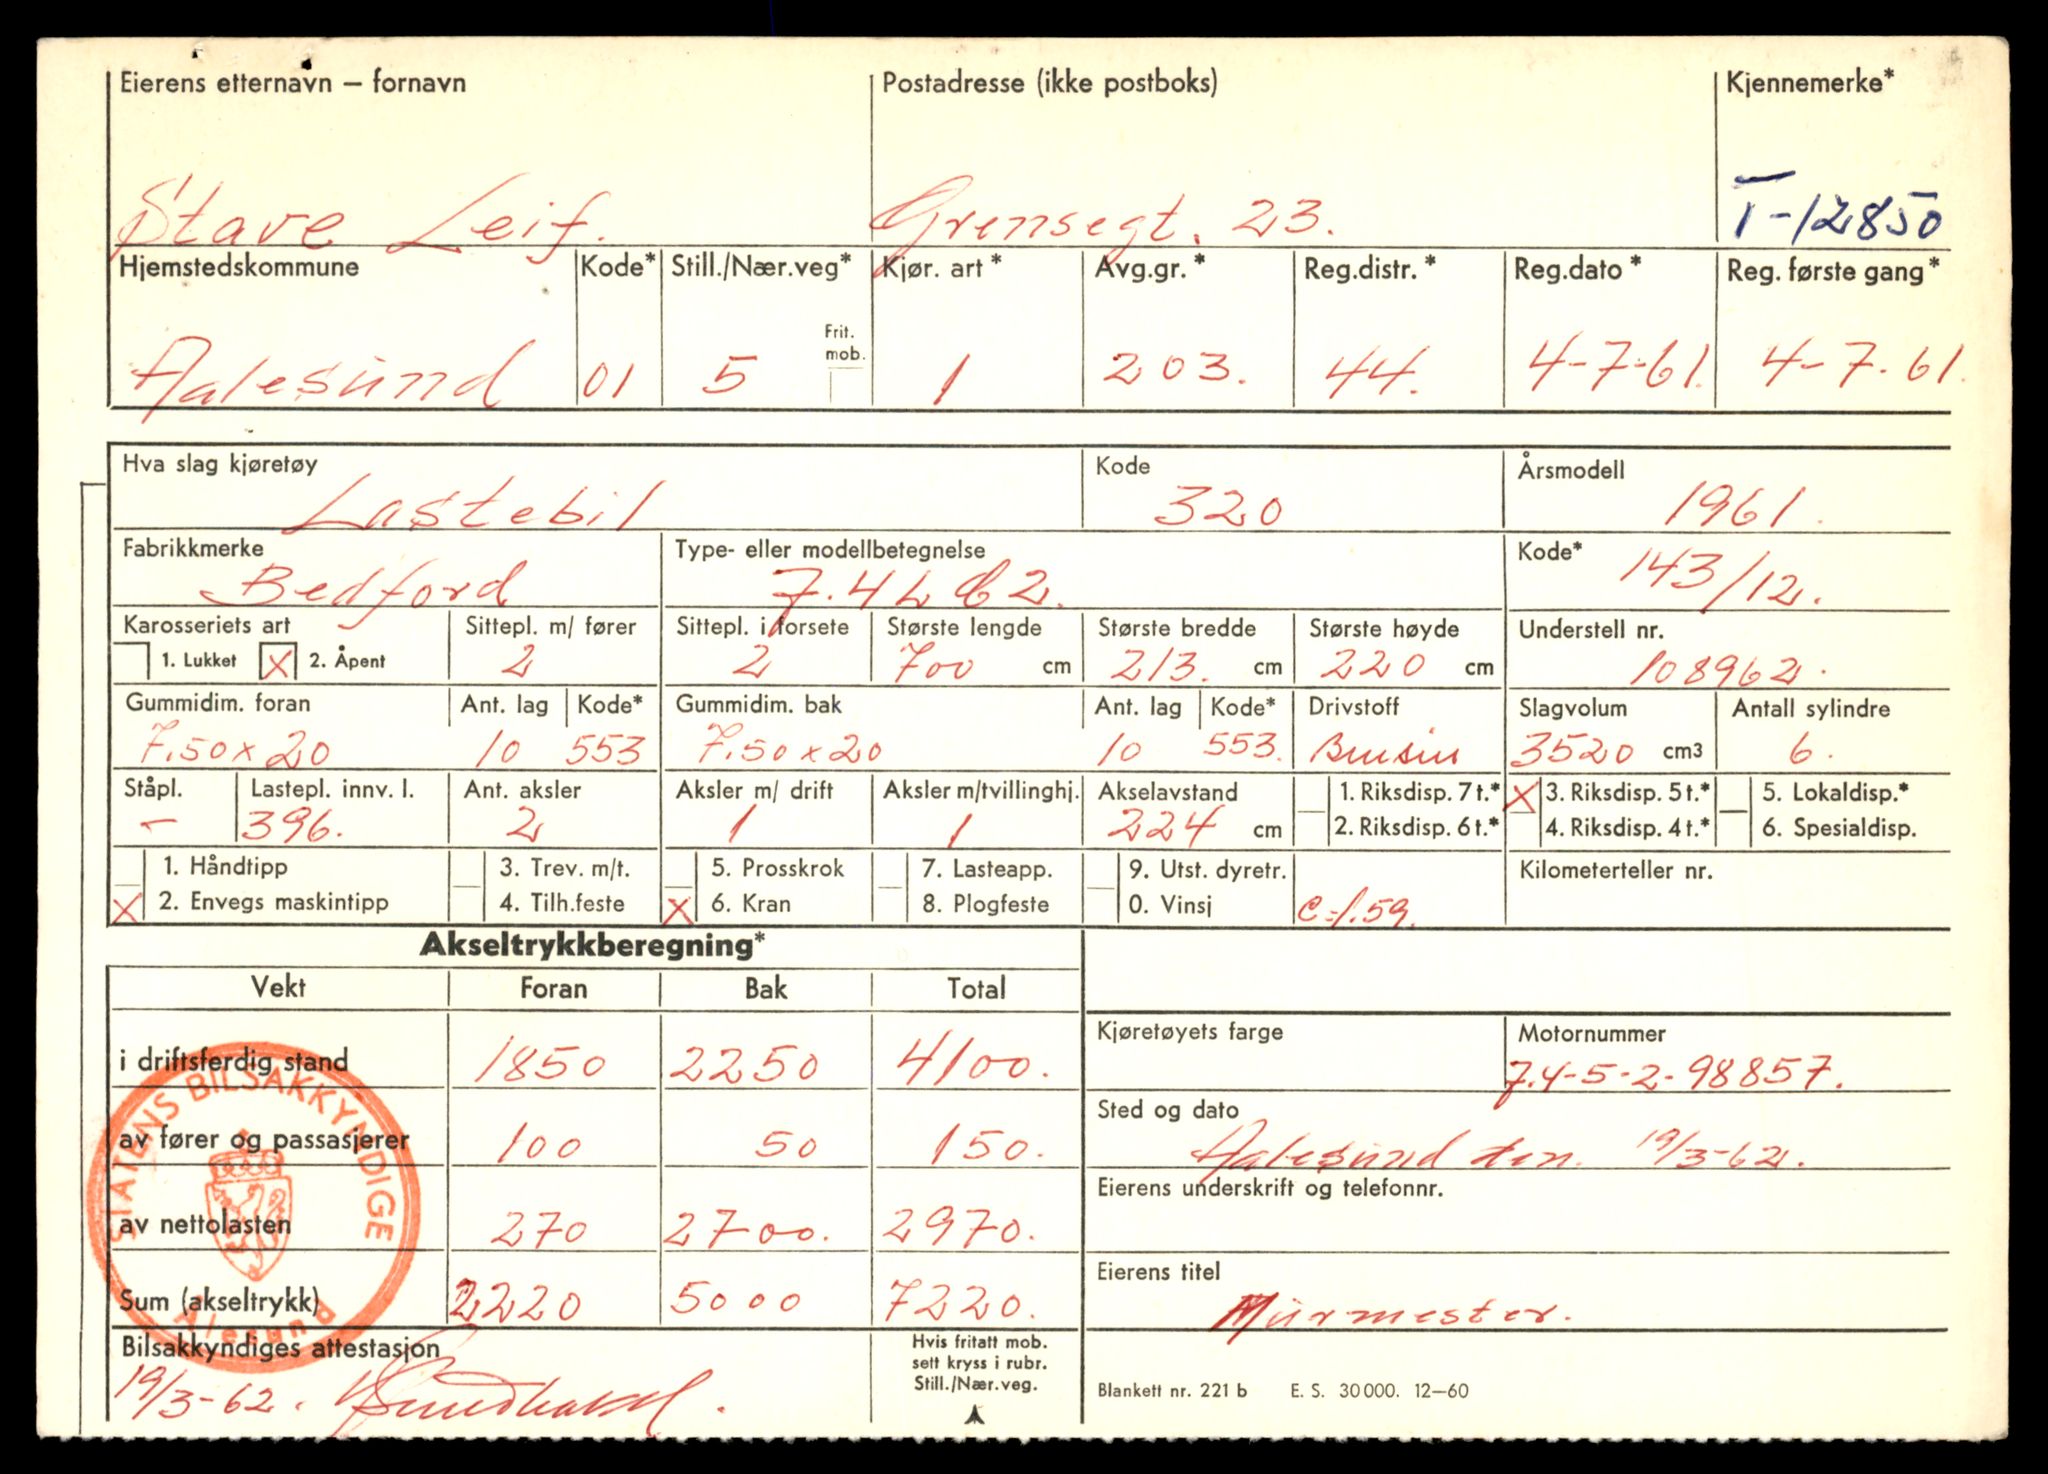 Eierens etternavn – fornavn Postadresse (ikke postboks) Kjennemerke*
Stave Leif. Grensegt. 23. T-12850
Hjemstedskommune Kode* Still./Nær.veg* Kjør. art* Avg.gr.* Reg.distr.* Reg.dato* Reg. første gang*
Frit.
mob.
Aalesund 01 5 1 203. 44. 4-7-61. 4-7.61.
Hva slag kjøretøy Kode Årsmodell
Lastebil 320 1961.
Fabrikkmerke Type- eller modellbetegnelse Kode*
Bedford 7.4L C2. 143/12.
Karosseriets art Sittepl. m/ fører Sittepl. i forsete Største lengde Største bredde Største høyde Understell nr.
1. Lukket X 2. Åpent 2 2 700 cm 213. cm 220 cm 108962.
Gummidim. foran Ant. lag Kode* Gummidim. bak Ant. lag Kode* Drivstoff Slagvolum Antall sylindre
7.50x20 10 553 7.50x20 10 553. Bensin 3520 cm3 6.
Ståpl. Lastepl. innv. l. Ant. aksler Aksler m/ drift Aksler m/tvillinghj. Akselavstand 1. Riksdisp. 7 t.* X 3. Riksdisp. 5 t.* 5. Lokaldisp.*
– 396. 2 1 1 224 cm 2. Riksdisp. 6 t.* 4. Riksdisp. 4 t.* 6. Spesialdisp.
1. Håndtipp 3. Trev. m/t. 5. Prosskrok 7. Lasteapp. 9. Utst. dyretr. Kilometerteller nr.
X 2. Envegs maskintipp 4. Tilh.feste X 6. Kran 8. Plogfeste 0. Vinsj C=1.59.
Akseltrykkberegning*
Vekt Foran Bak Total
Kjøretøyets farge Motornummer
i driftsferdig stand 1850 2250 4100. 7.4-5-2-98857.
Sted og dato
av fører og passasjerer 100 50 150. Aalesund den. 19/3-62.
Eierens underskrift og telefonnr.
av nettolasten 270 2700. 2970.
Eierens titel
Sum (akseltrykk) 2220 5000 7220. Murmester.
STATENS BILSAKKYNDIGE
Ålesund
Bilsakkyndiges attestasjon Hvis fritatt mob.
sett kryss i rubr.
Still./Nær.veg.
19/3-62.
Blankett nr. 221 b E. S. 30 000. 12–60